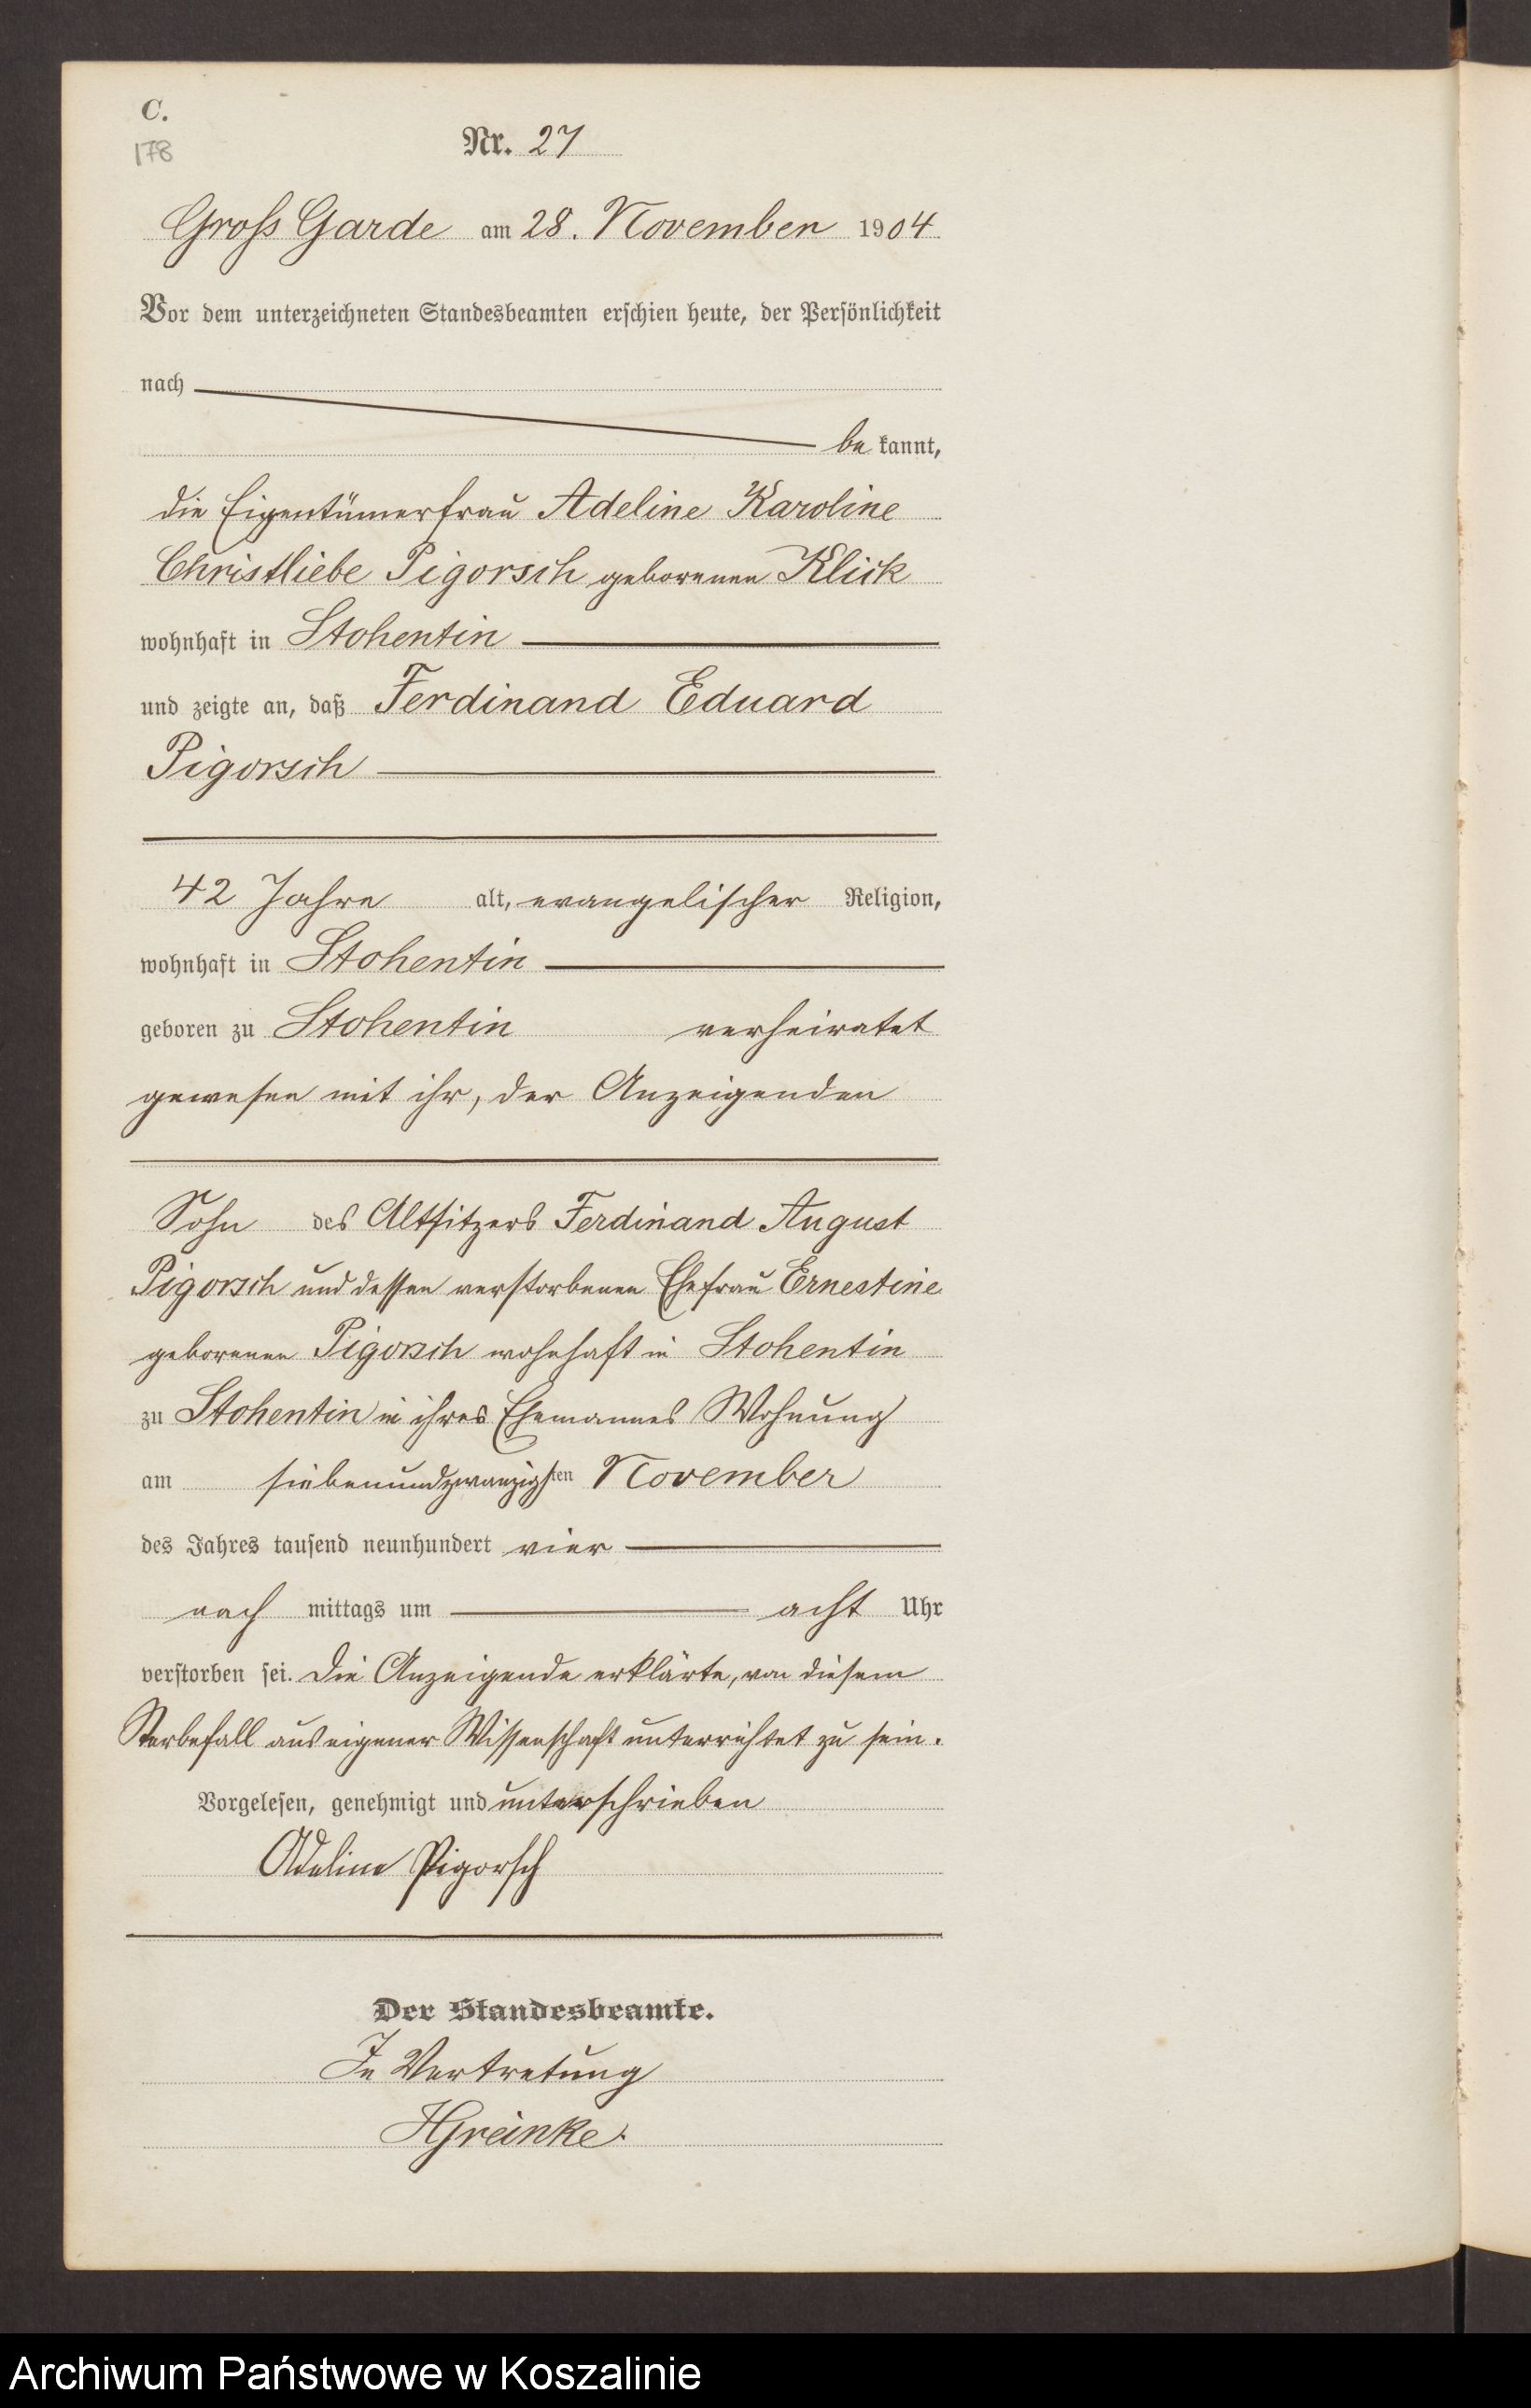 C.
178
Nr. 27
Gross Garde am 28. November 1904
Vor dem unterzeichneten Standesbeamten erschien heute, der Persönlichkeit
nach
be kannt,
die Eigentümerfrau Adeline Karoline
Christliebe Pigorsch geborenen Klick
wohnhaft in Stohentin
und zeigte an, daß Ferdinand Eduard
Pigorsch
42 Jahre alt, evangelischer Religion,
wohnhaft in Stohentin
geboren zu Stohentin verheiratet
gewesen mit ihr, der Anzeigenden
Sohn des Altsitzers Ferdinand August
Pigorsch und dessen verstorbenen Ehefrau Ernestine
geborenen Pigorsch wohnhaft in Stohentin
zu Stohentin in ihres Ehemannes Wohnung
am siebenundzwanzigsten November
des Jahres tausend neunhundert vier
nach mittags um acht Uhr
verstorben sei. Die Anzeigende erklärte, von diesem
Sterbefall aus eigener Wissenschaft unterrichtet zu sein.
Vorgelesen, genehmigt und unterschrieben
Adeline Pigorsch
Der Standesbeamte.
In Vertretung
HGreinke.
Archiwum Państwowe w Koszalinie